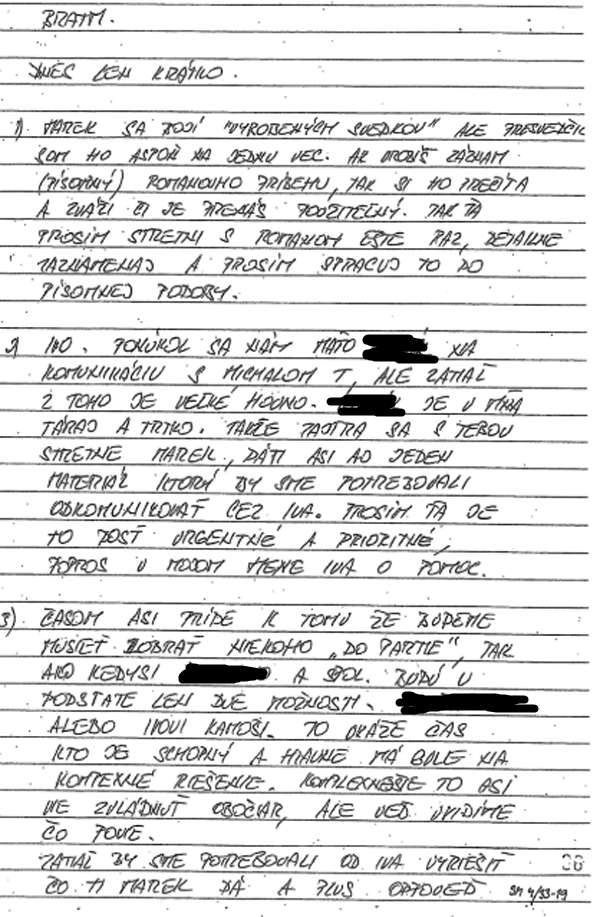 BRATM.
DNES LEN KRÁTKO.
1) MAREK SA BOJÍ "VYROBENÝCH SVEDKOV" ALE PRESVEDČIL
SOM HO ASPOŇ NA JEDNU VEC. AK UROBÍŠ ZÁZNAM
(PÍSOMNÝ) ROMANOVHO PRÍBEHU, TAK SI HO PREČÍTA
A ZVÁŽI ČI JE PRENÁS POUŽITEĽNÝ. TAK ŤA
PROSÍM STRETNI S ROMANOM EŠTE RAZ, DETAILNE
ZAZNAMENAJ A PROSÍM SPRACUJ TO DO
PÍSOMNEJ PODOBY.
2) IVO. PONÚKOL SA NÁM MAŤO NA
KOMUNIKÁCIU S MICHALOM T, ALE ZATIAĽ
Z TOHO JE VEĽKÉ HOVNO. JE U MŇA
TÁRAJ A TRTKO. TAKŽE ZAJTRA SA S TEBOU
STRETNE MAREK, DÁTI ASI AJ JEDEN
MATERIÁL KTORÝ BY SME POTREBOVALI
ODKOMUNIKOVAŤ CEZ IVA. PROSÍM ŤA JE
TO DOSŤ URGENTNÉ A PRIORITNÉ,
POPROS V MOJOM MENE IVA O POMOC.
3) ČASOM ASI PRÍDE K TOMU ŽE BUDEME
MUSIEŤ ZOBRAŤ NIEKOHO „DO PARTIE", TAK
AKO KEDYSI A SPOL. BUDÚ V
PODSTATE LEN DVE MOŽNOSTI.
ALEBO NOVÍ KAMOŠI. TO UKÁŽE ČAS
KTO JE SCHOPNÝ A HLAVNE MÁ BULE NA
KOMPEXNÉ RIEŠENIE. KOMPLEXNEJŠIE TO ASI
VIE ZVLÁDNUŤ OBOČIAR, ALE VEĎ UVIDÍME
ČO POVIE.
ZATIAĽ BY SME POTREBOVALI OD IVA VYRIEŠIŤ
ČO TI MAREK DÁ A PLUS ODPOVEĎ